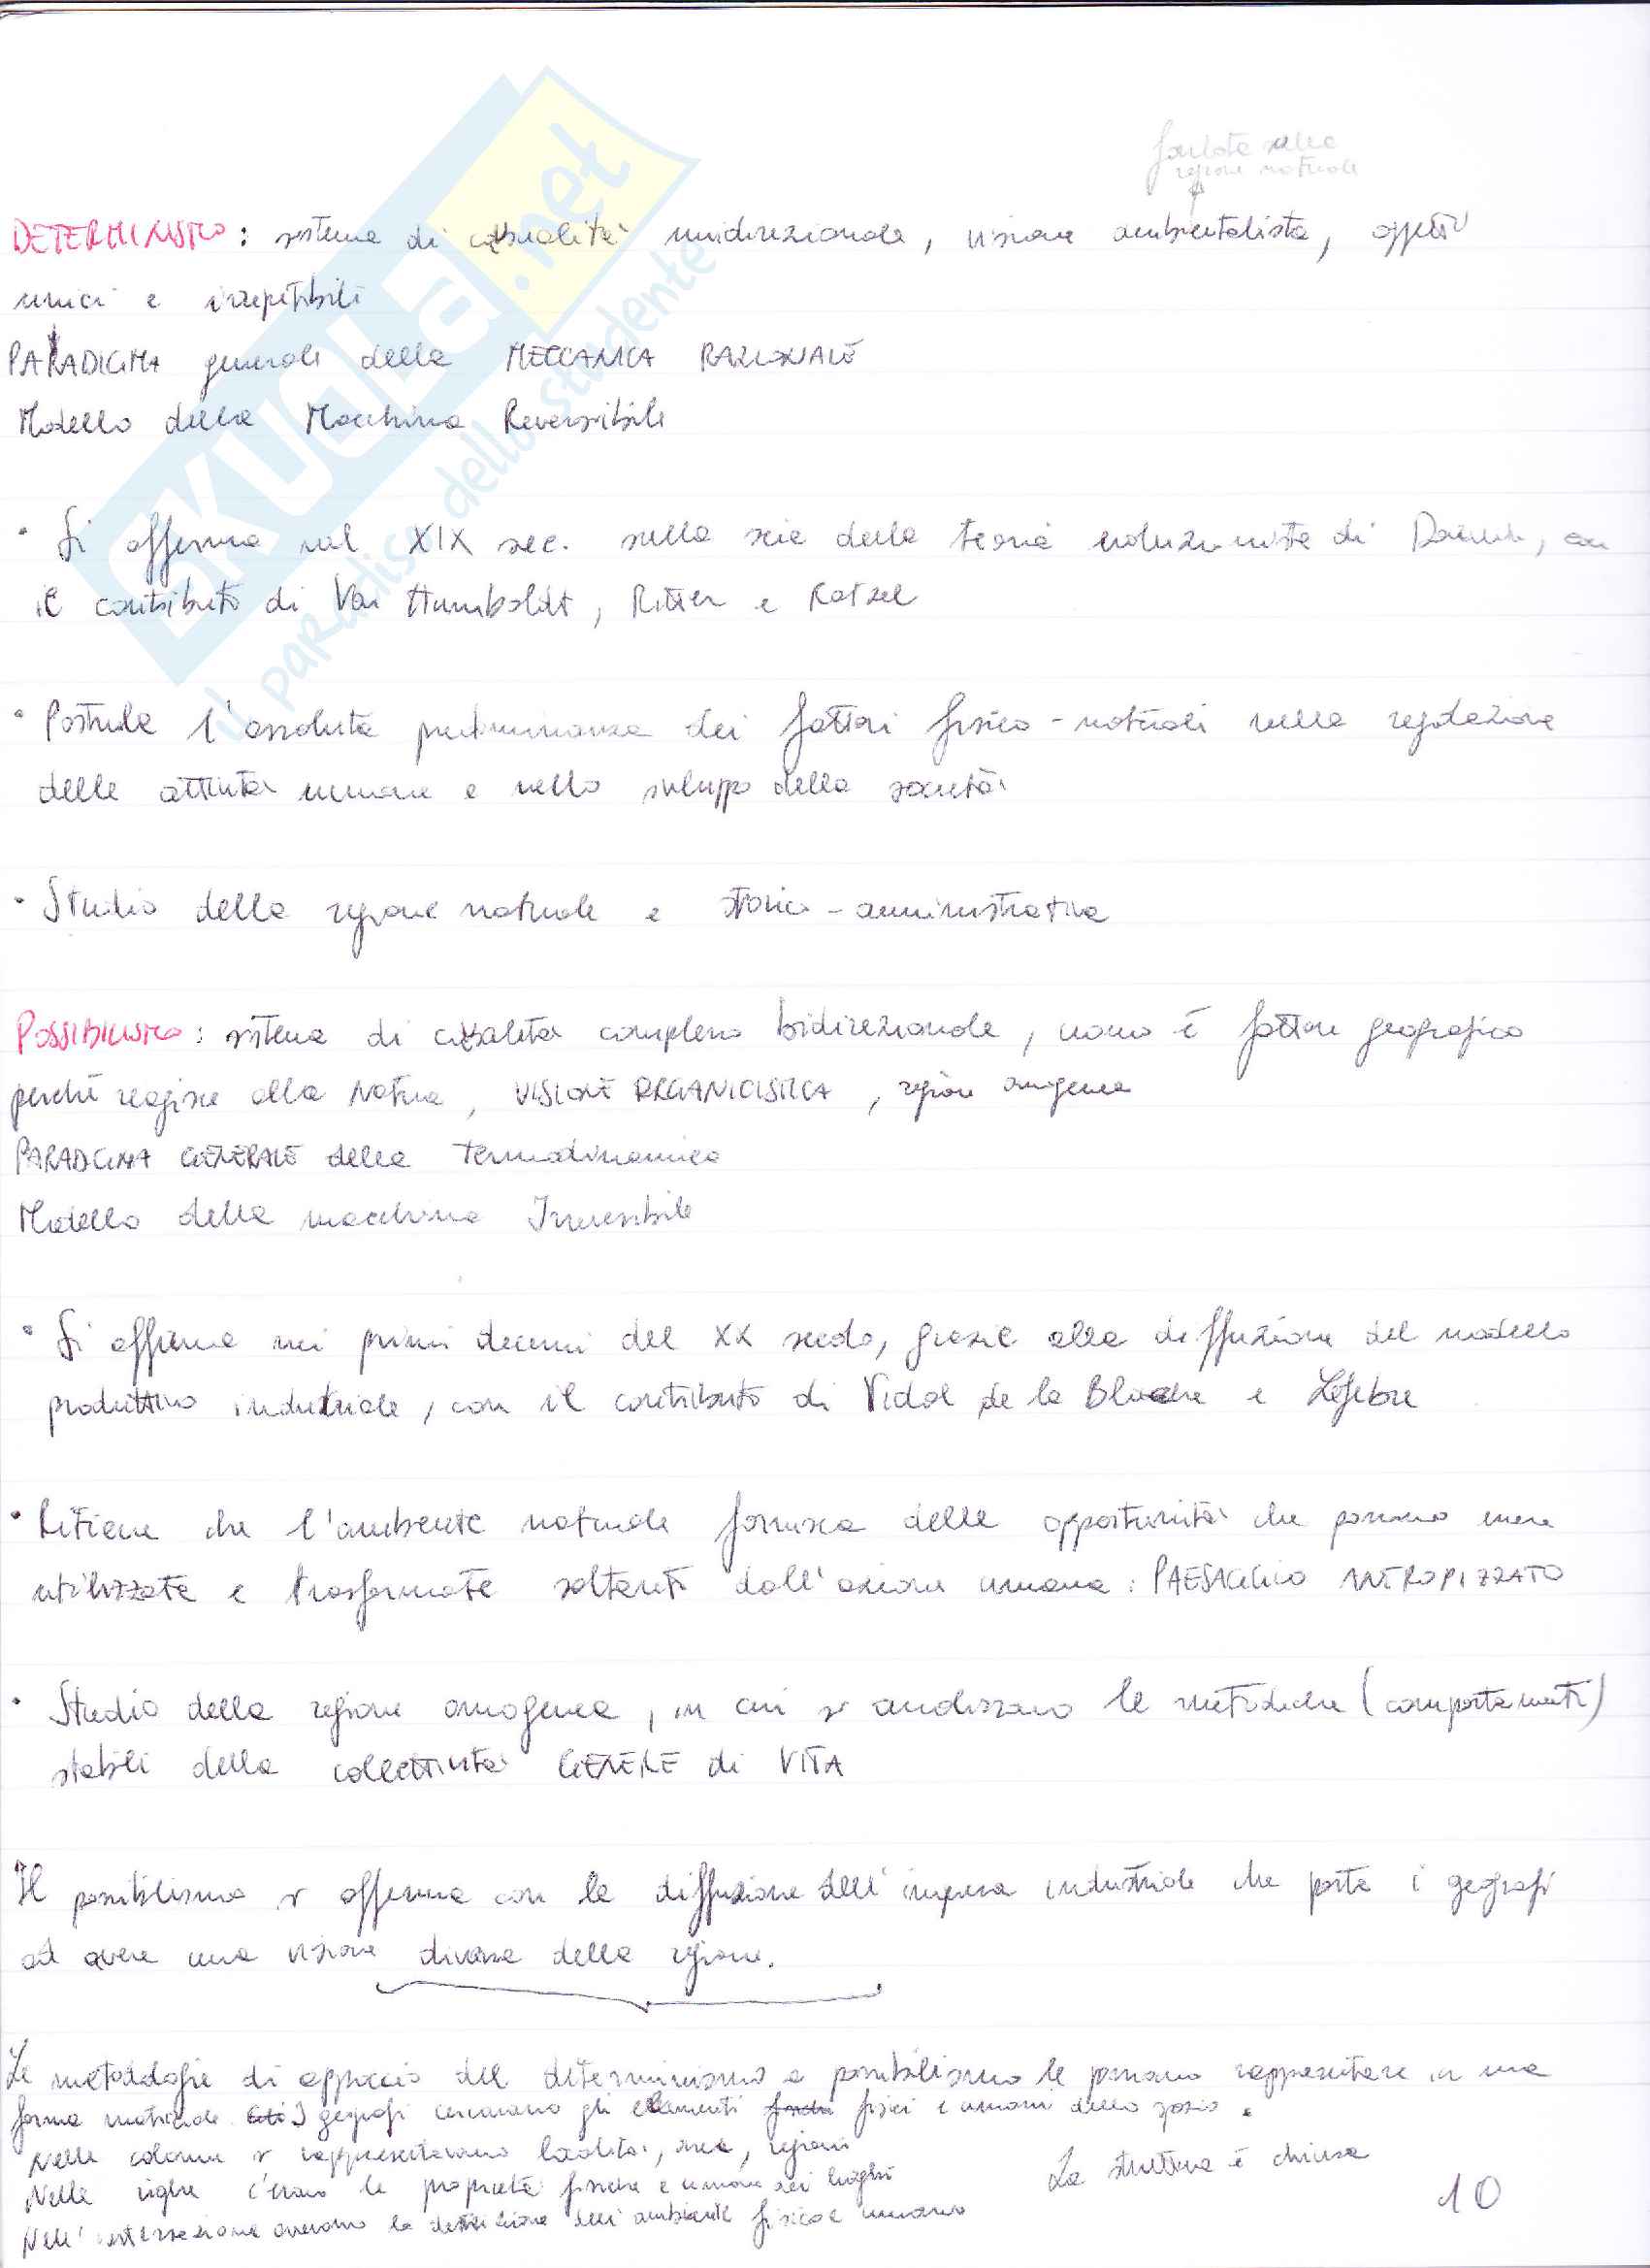 fondata sulla
regione naturale
DETERMINISMO: sistema di causalità unidirezionale, visione ambientalista, oggetti
unici e irrepetibili
PARADIGMA generale della MECCANICA RAZIONALE
Modello della Macchina Reversibile
• Si afferma nel XIX sec. sulla scia delle teorie evoluzioniste di Darwin, con
il contributo di Von Humboldt, Ritter e Ratzel
• Postula l'assoluta predominanza dei fattori fisico-naturali nella regolazione
delle attività umane e nello sviluppo della società
• Studio della regione naturale e storico-amministrativa
POSSIBILISMO: sistema di causalità complessa bidirezionale, uomo è fattore geografico
perché reagisce alla Natura, VISIONE ORGANICISTICA, regione omogenea
PARADIGMA GENERALE della Termodinamica
Modello della macchina Irreversibile
• Si afferma nei primi decenni del XX secolo, grazie alla diffusione del modello
produttivo industriale, con il contributo di Vidal de la Blache e Lefebre
• Ritiene che l'ambiente naturale fornisca delle opportunità che possono essere
utilizzate e trasformate soltanto dall'azione umana: PAESAGGIO ANTROPIZZATO
• Studio della regione omogenea, in cui si analizzano le metodiche (comportamenti)
stabili della collettività GENERE di VITA
Il possibilismo si afferma con la diffusione dell'impresa industriale che porta i geografi
ad avere una visione diversa della regione.
Le metodologie di approccio del determinismo e possibilismo le possono rappresentare in una
forma matriciale I geografi cercavano gli elementi fisici e umani dello spazio.
Nelle colonne si rappresentavano località, aree, regioni
Nelle righe c'erano le proprietà fisiche e umane dei luoghi
La struttura è chiusa
Nell'intersezione avevamo la descrizione dell'ambiente fisico e umano
10
SKUOLA.net
il paradiso dello studente